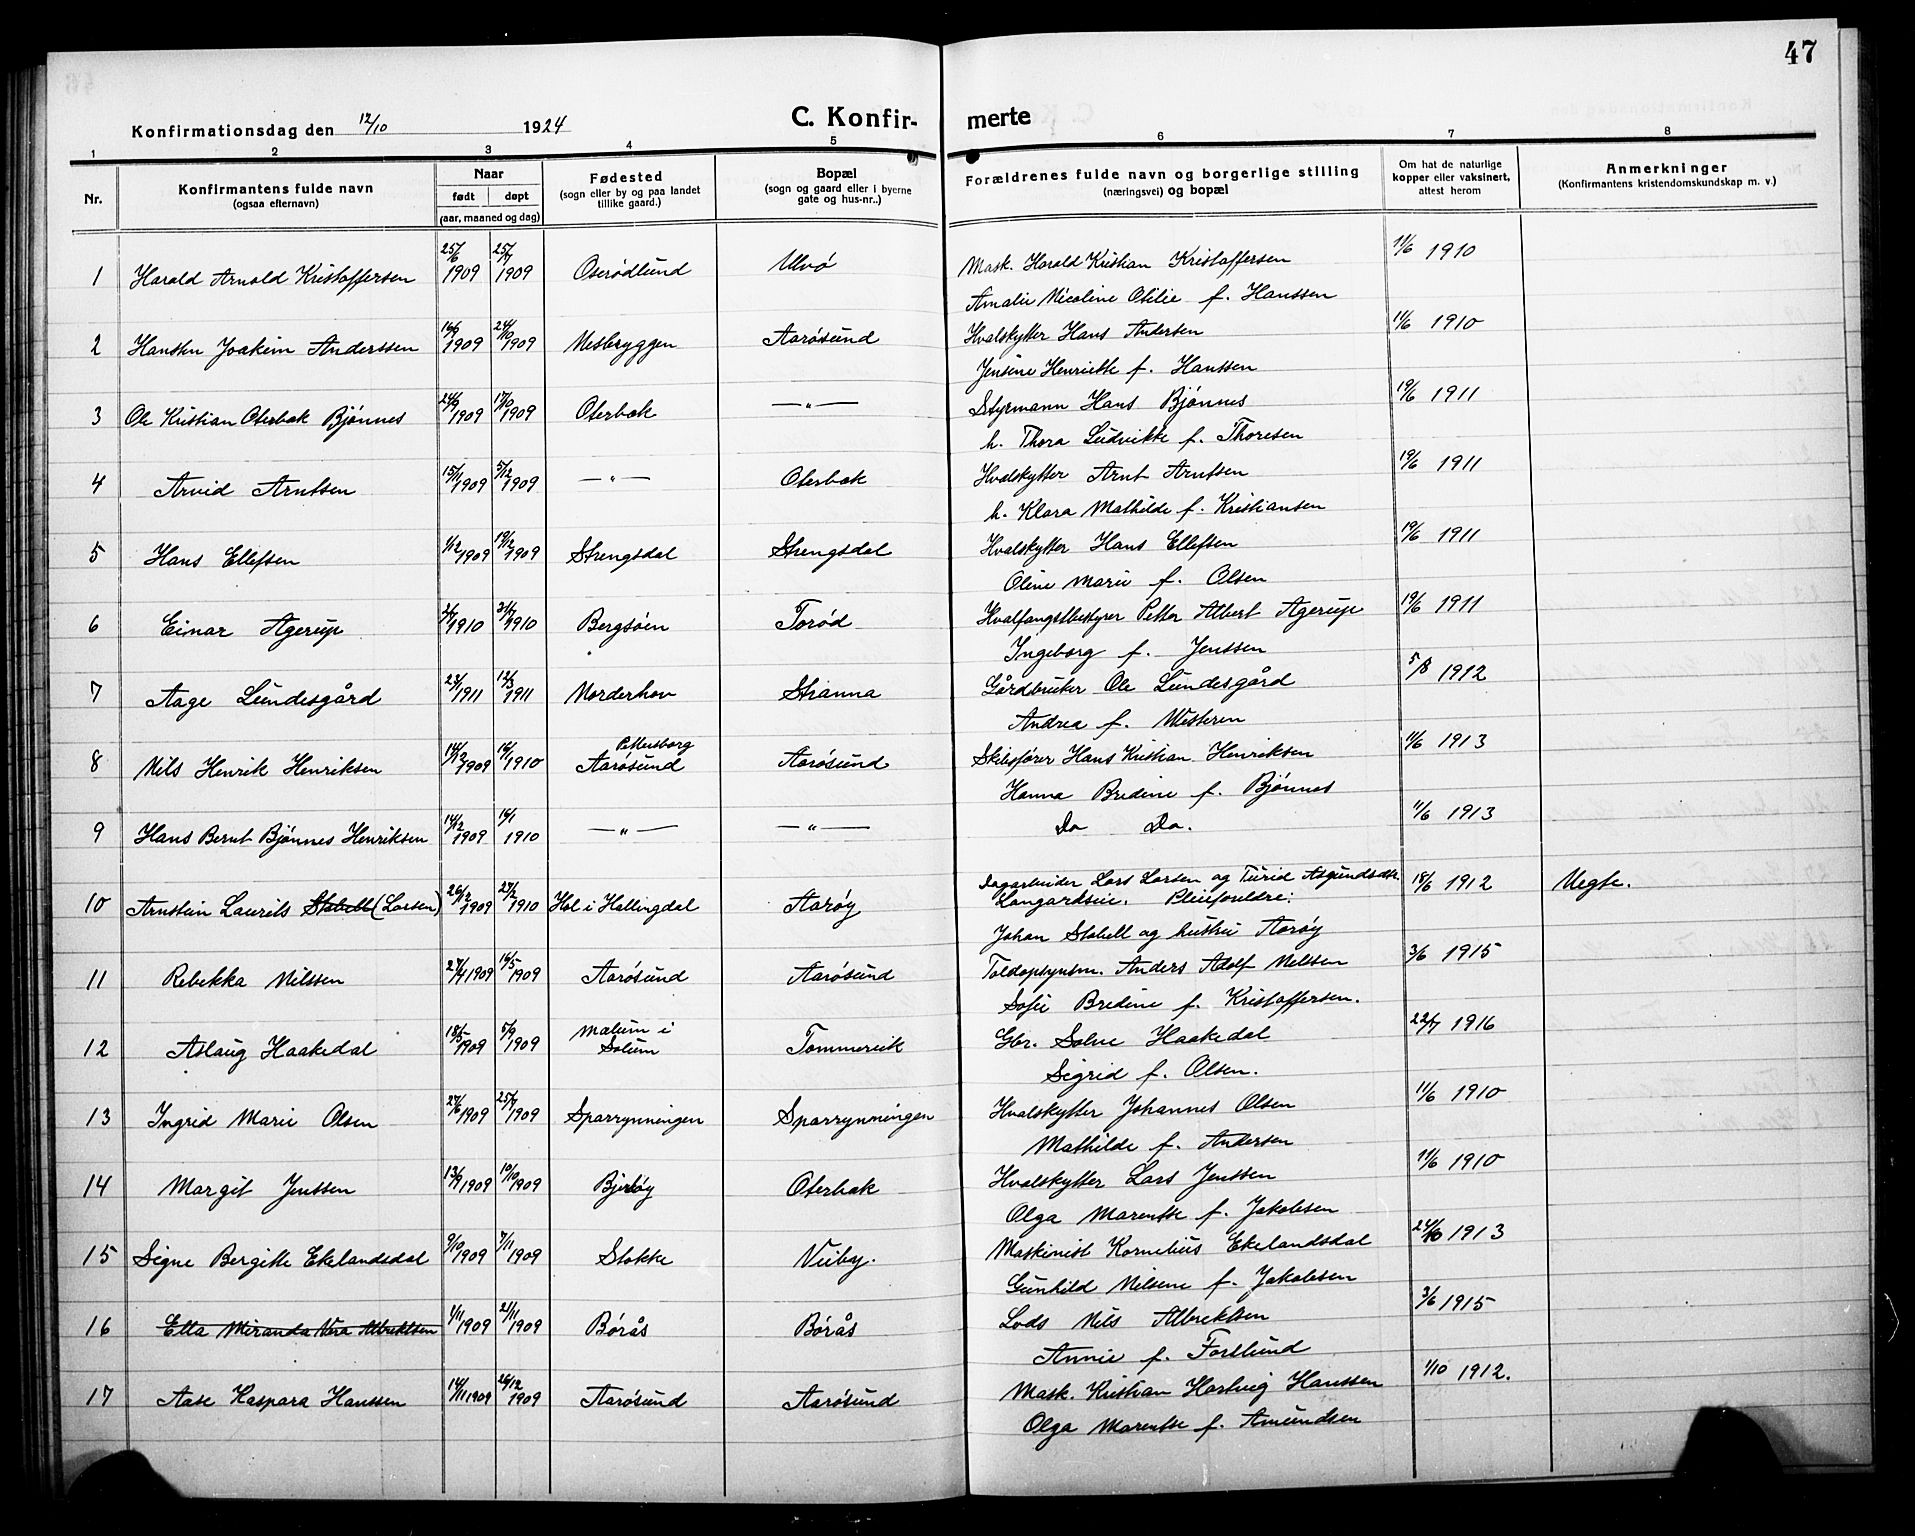 47
Konfirmationsdag den 12/10 1924
C. Konfir- merte
1 2 3 4 5 6 7 8
Nr.
Konfirmantens fulde navn
(ogsaa efternavn)
Naar
født døpt
(aar, maaned og dag)
Fødested
(sogn eller by og paa landet
tillike gaard.)
Bopæl
(sogn og gaard eller i byerne
gate og hus-nr..)
Forældrenes fulde navn og borgerlige stilling
(næringsvei) og bopæl
Om hat de naturlige
kopper eller vaksinert,
attest herom
Anmerkninger
(Konfirmantens kristendomskundskap m. v.)
1 Harald Arnold Kristoffersen 25/6 1909 25/7 1909 Oterødlund Ulvø Mask. Harald Kristian Kristoffersen 11/6 1910
Amalie Nicoline Otilie f. Hanssen
2 Hansten Joakim Anderssen 16/9 1909 24/10 1909 Nesbryggen Aarøsund Hvalskytter Hans Andersen 11/6 1910
Jensine Henriette f. Hanssen
3 Ole Kristian Oterbæk Bjønnes 24/9 1909 17/10 1909 Oterbæk —„— Styrmann Hans Bjønnes 19/6 1911
h. Thora Ludvikke f. Thoresen
4 Arvid Arntsen 15/11 1909 5/12 1909 —„— Oterbæk Hvalskytter Arnt Arntsen 19/6 1911
h. Klara Mathilde f. Kristiansen
5 Hans Ellefsen 1/12 1909 19/12 1909 Strengsdal Strengsdal Hvalskytter Hans Ellefsen 19/6 1911
Oline Marie f. Olsen
6 Einar Agerup 1910 31/7 1910 Bergsøen Torød Hvalfangstbestyrer Petter Albert Agerup 19/6 1911
Ingeborg f. Jenssen
7 Aage Lundesgård 23/1 1911 12/3 1911 Norderhov Stranna Gårdbruker Ole Lundesgård 5/8 1912
Andrea f. Westeren
8 Nils Henrik Henriksen 14/12 1909 16/1 1910 Pettersborg Aarøsund Aarøsund Skibsfører Hans Kristian Henriksen 11/6 1913
Hanna Bredine f. Bjønnes
9 Hans Bernt Bjønnes Henriksen 14/12 1909 16/1 1910 —„— —„— Do Do. 11/6 1913
10 Arnstein Laurits Stabell (Larsen) 26/12 1909 27/2 1910 Hol i Hallingdal Aarøy Dagarbeider Lars Larsen og Turid Asgundsdtr. 18/6 1912 Uegte.
Langardseie. Pleieforeldre:
Johan Stabell og hustru Aarøy
11 Rebekka Nilssen 27/4 1909 16/5 1909 Aarøsund Aarøsund Toldopsynsm. Anders Adolf Nilssen 3/6 1915
Sofie Bredine f. Kristoffersen.
12 Aslaug Haakedal 18/5 1909 5/9 1909 Mælum i Solum Tommervik Gbr. Solve Haakedal 22/7 1916
Sigrid f. Olsen.
13 Ingrid Marie Olsen 27/6 1909 25/7 1909 Sparrynningen Sparrynningen Hvalskytter Johannes Olsen 11/6 1910
Mathilde f. Andersen
14 Margit Jenssen 13/9 1909 10/10 1909 Bjerkøy Oterbæk Hvalskytter Lars Jenssen 11/6 1910
Olga Marentse f. Jakobsen
15 Signe Bergitte Ekelandsdal 9/10 1909 7/11 1909 Stokke Veiby. Maskinist Kornelius Ekelandsdal 24/10 1913
Gunhild Nilsene f. Jakobsen
16 Ella Miranda Vera Albrektsen 4/11 1909 21/11 1909 Børås Børås Lods Nils Albrektsen 3/6 1915
Annie f. Forslund
17 Aase Kaspara Hanssen 14/11 1909 26/12 1909 Aarøsund Aarøsund Mask. Kristian Hartvig Hanssen 1/10 1912.
Olga Marentse f. Amundsen